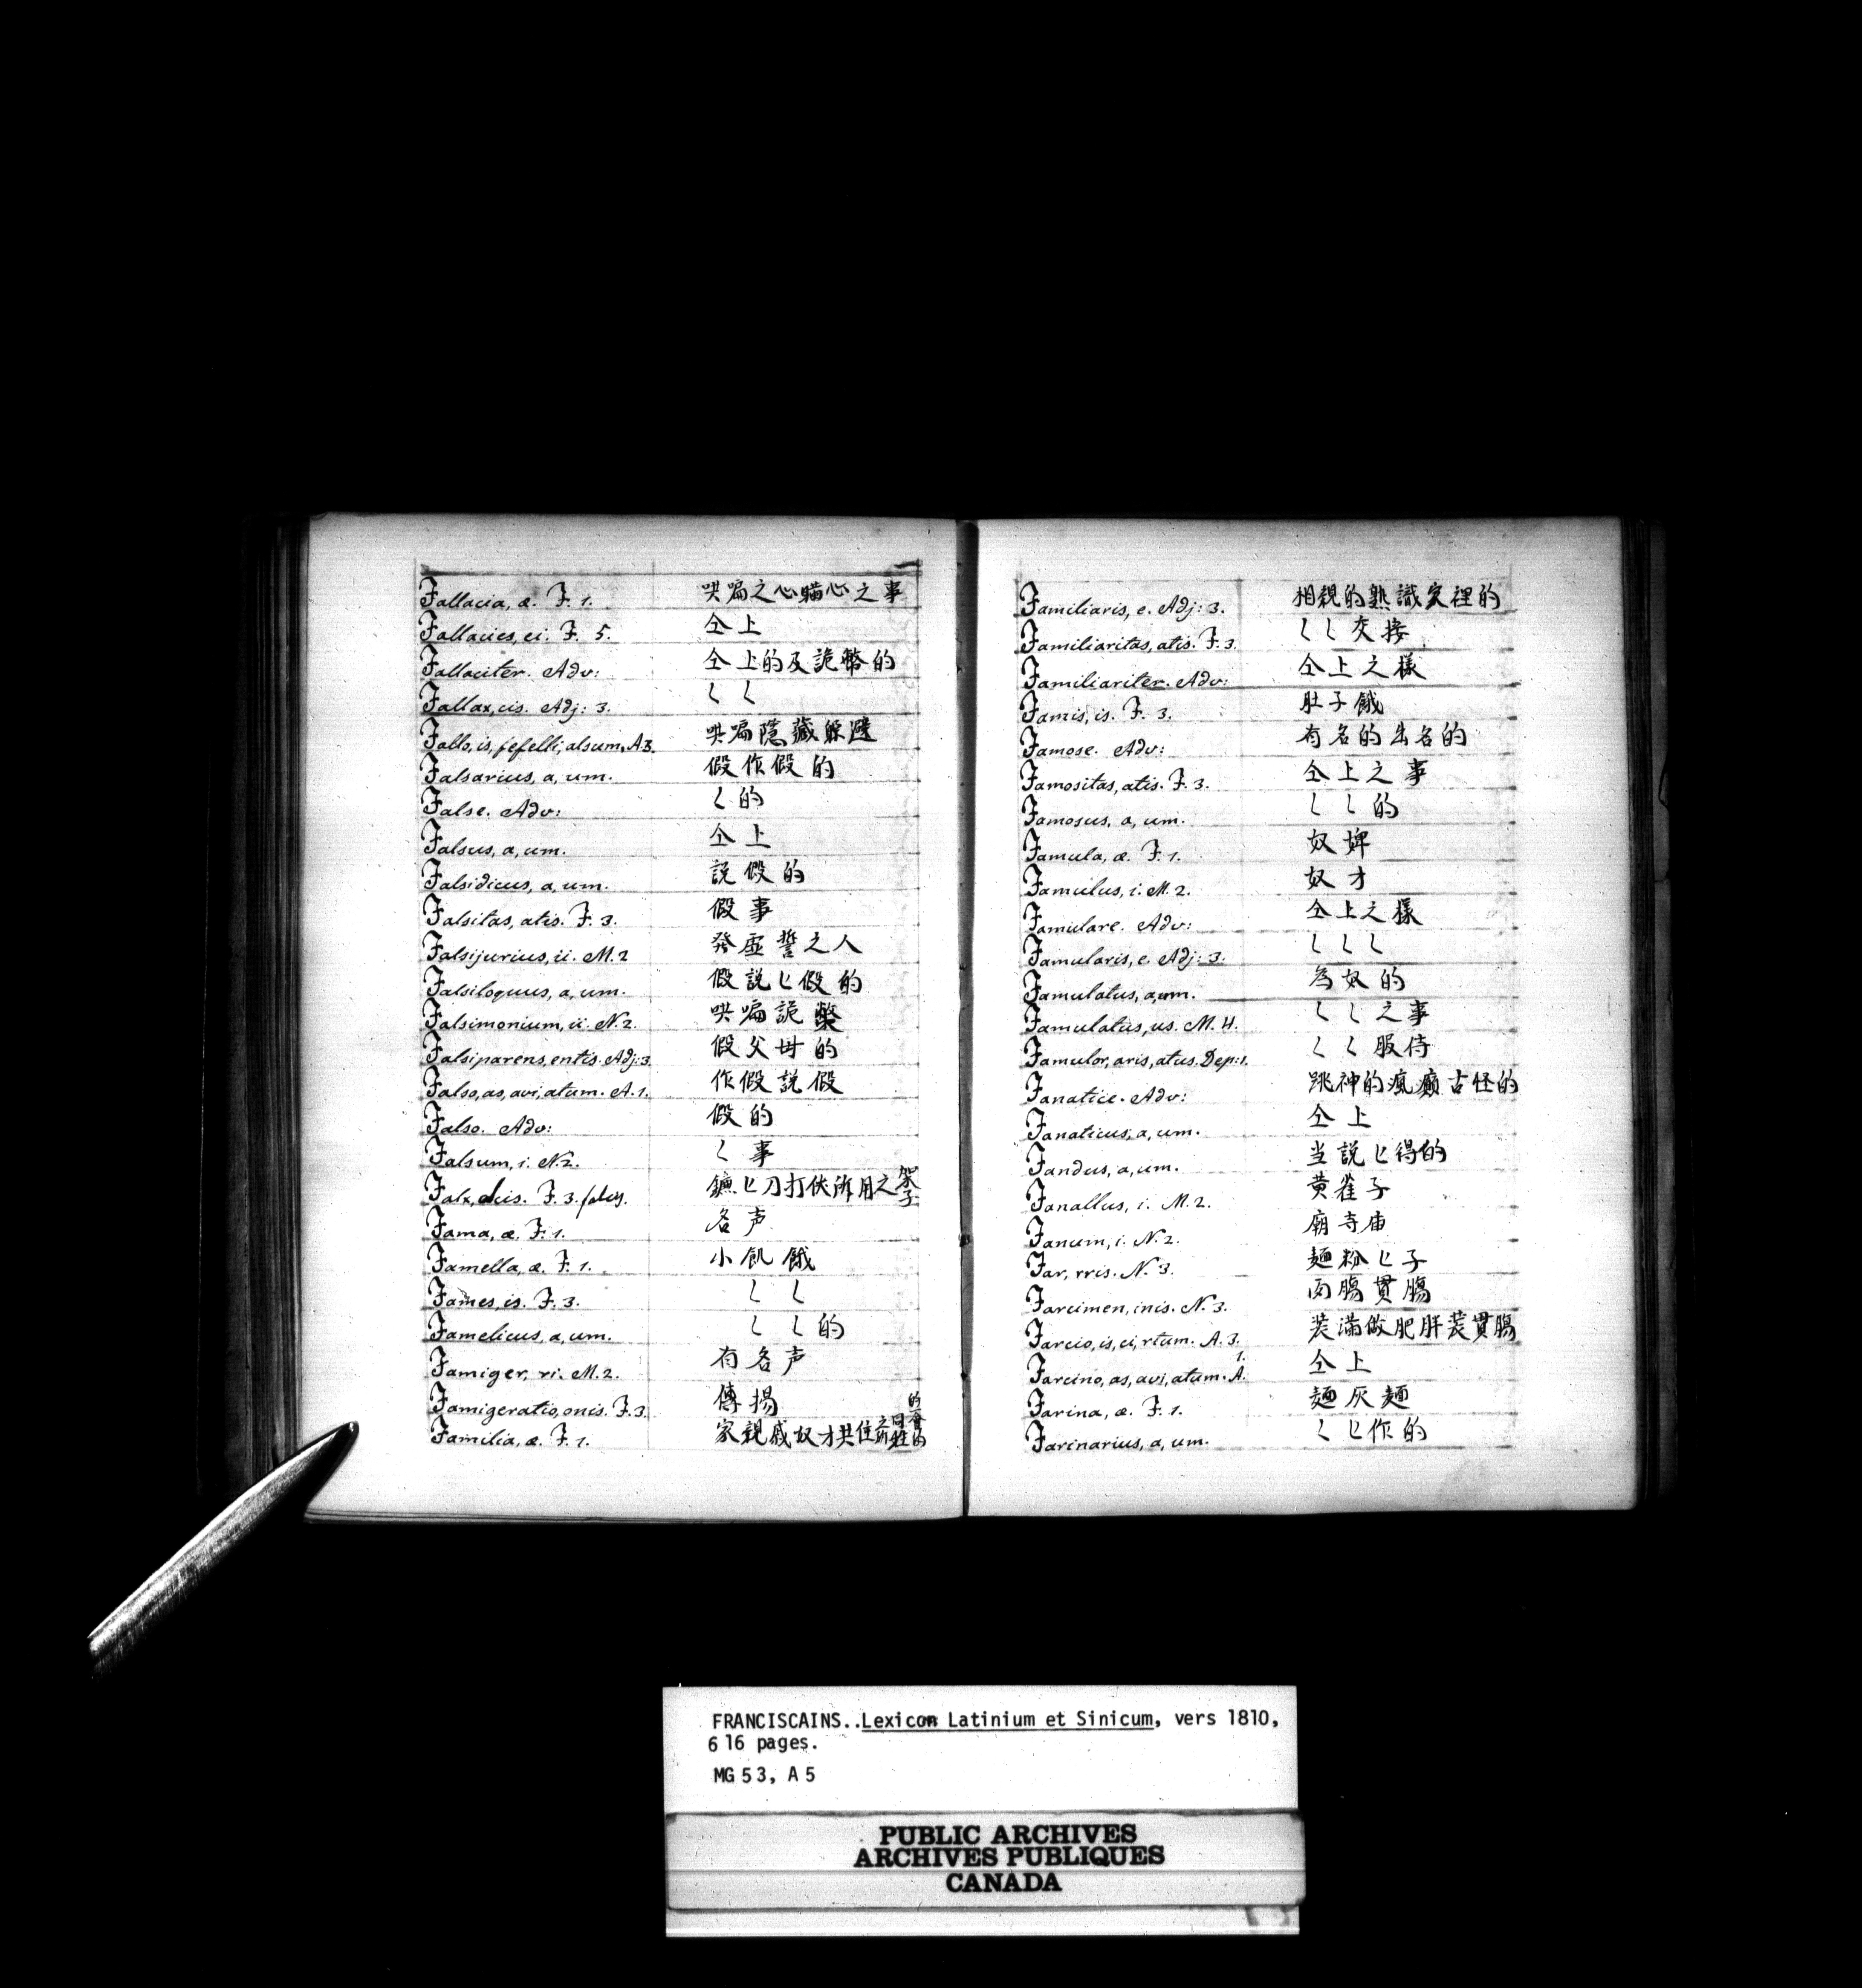 Fallacia, æ. F. 1. 哄騙之心瞞心之事
Fallacies, ei. F. 5. 仝上
Fallaciter. Adv: 仝上的及詭弊的
Fallax, cis. Adj: 3. く く
Fallo, is, fefelli, alsum, A3. 哄騙隱藏躲避
Falsarius, a, um. 假作假的
False. Adv: く的
Falsus, a, um. 仝上
Falsidicus, a, um. 說假的
Falsitas, atis. F. 3. 假事
Falsijurius, ii. M. 2 發虛誓之人
Falsiloquus, a, um. 假説匕假的
Falsimonium, ii. N. 2. 哄騙詭弊
Falsiparens, entis. Adj: 3. 假父母的
Falso, as, avi, atum. A. 1. 作假說假
Falso. Adv: 假的
Falsum, i. N. 2. く事
Falx, lcis. F. 3. 鐮匕刀打伏所用之
Fama, æ. F. 1. 各声
Famella, æ. F. 1. 小飢餓
Fames, is. F. 3. く く
Famelicus, a, um. く く的
Famiger, ri. M. 2. 有各声
Famigeratio, onis. F. 3. 傳揚
Familia, æ. F. 1. 家親戚奴才共住
Familiaris, e. Adj: 3. 相親的熟識家裡的
Familiaritas, atis. F. 3. く く交接
Familiariter. Adv: 仝上之樣
Famis, is. F. 3. 肚子餓
Famose. Adv: 有名的出名的
Famositas, atis. F. 3. 仝上之事
Famosus, a, um. く く的
Famula, æ. F. 1. 奴婢
Famulus, i. M. 2. 奴才
Famulare. Adv: 仝上之樣
Famularis, e. Adj: 3. く く く
Famulatus, a, um. 為奴的
Famulatus, us. M. 4. く く之事
Famulor, aris, atus. Dep: 1. く く服侍
Fanatice. Adv: 跳神的瘋癲古怪的
Fanaticus, a, um. 仝上
Fandus, a, um. 当説匕得的
Fanallus, i. M. 2. 黄雀子
Fanum, i. N. 2. 廟寺庙
Far, rris. N. 3. 麺粉匕子
Farcimen, inis. N. 3. 肉膓貫膓
Farcio, is, ci, rtum. A. 3. 装滿做肥胖装貫膓
Farcino, as, avi, atum. A. 1. 仝上
Farina, æ. F. 1. 麺灰麺
Farinarius, a, um. く匕作的
FRANCISCAINS..Lexicon Latinium et Sinicum, vers 1810,
616 pages.
MG 53, A 5
PUBLIC ARCHIVES
ARCHIVES PUBLIQUES
CANADA